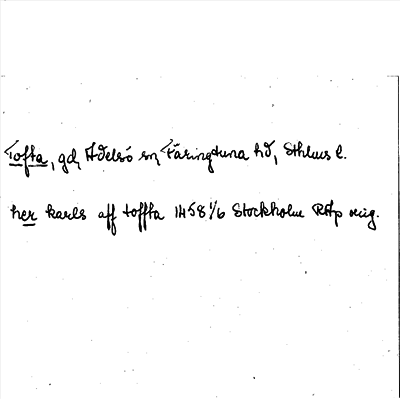 Tofta, gd, Adelsö sn, Färingtuna hd, Sthlms l.
her karls aff toffta 1458 1/6 Stockholm RAp orig.